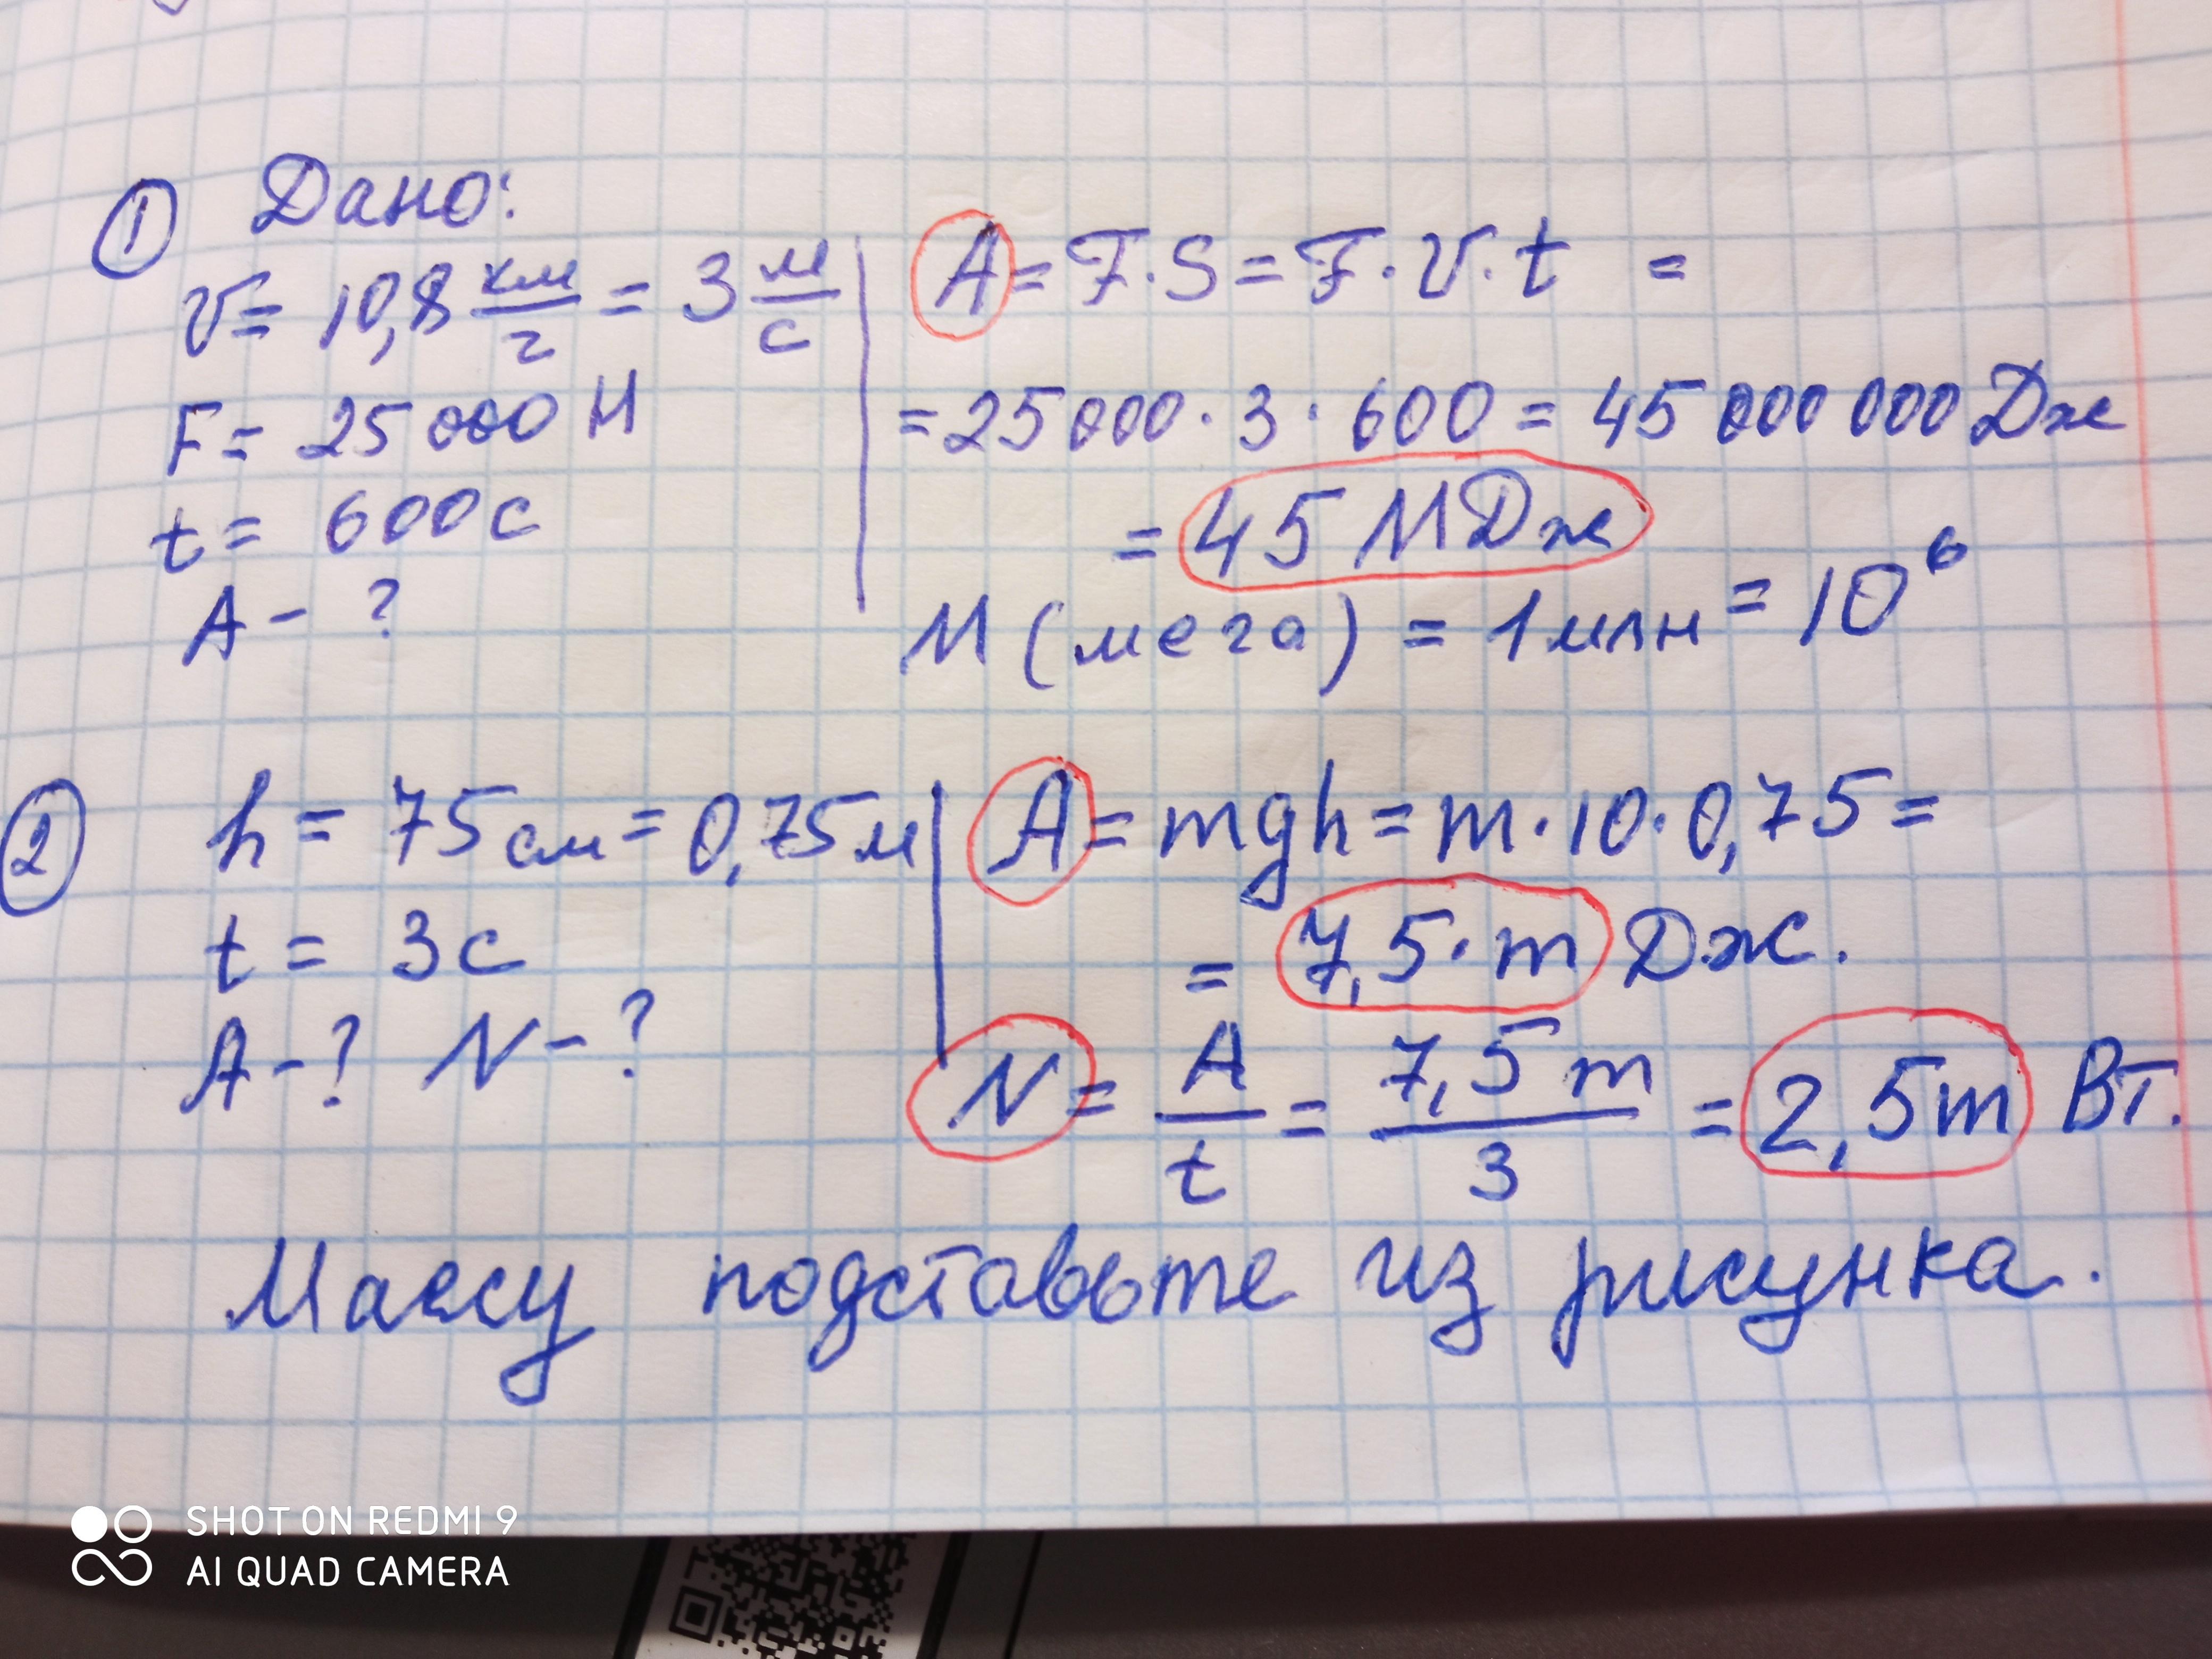 ① Дано:
V = 10,8 км/г = 3 м/с
F = 25 000 Н
t = 600 с
А - ?
A = F · S = F · V · t =
= 25 000 · 3 · 600 = 45 000 000 Дж
= 45 МДж
М (мега) = 1 млн = 10⁶
② h = 75 см = 0,75 м
t = 3 с
А - ? N - ?
A = mgh = m · 10 · 0,75 =
= 7,5 · m Дж.
N = A/t = 7,5 m/3 = 2,5 m Вт.
Массу подставьте из рисунка.
SHOT ON REDMI 9
AI QUAD CAMERA